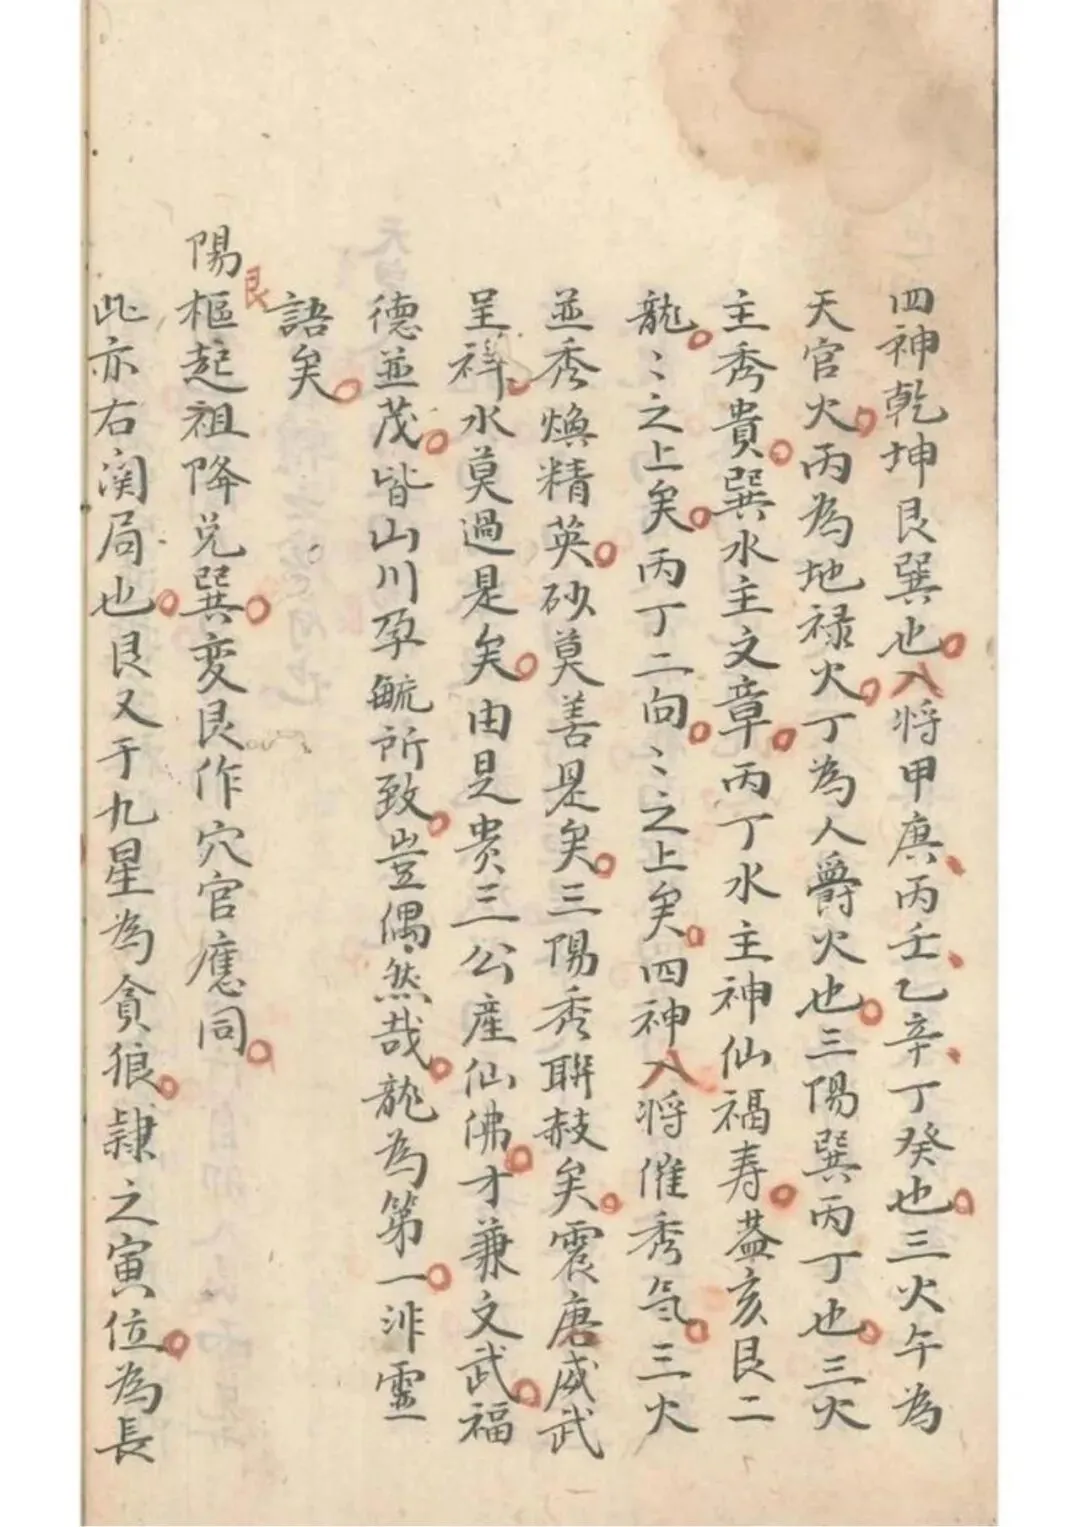 四神乾坤艮巽也八將甲庚丙壬乙辛丁癸也三火午為
天官火丙為地祿火丁為人爵火也三陽巽丙丁也三火
主秀貴巽水主文章丙丁水主神仙福寿蓋亥艮二
龍〻之上矣丙丁二向〻之上矣四神八將催秀氣三火
並秀煥精英砂莫善是矣三陽秀聯赦矣震庚威武
呈祥水莫過是矣由是贵三公産仙佛才兼文武福
德並茂皆山川孕毓所致豈偶然哉龍為第一湃靈
語矣
陽樞起祖降兑巽変艮作穴官應同
艮
此亦右関局也艮又于九星為貪狼隷之寅位為長